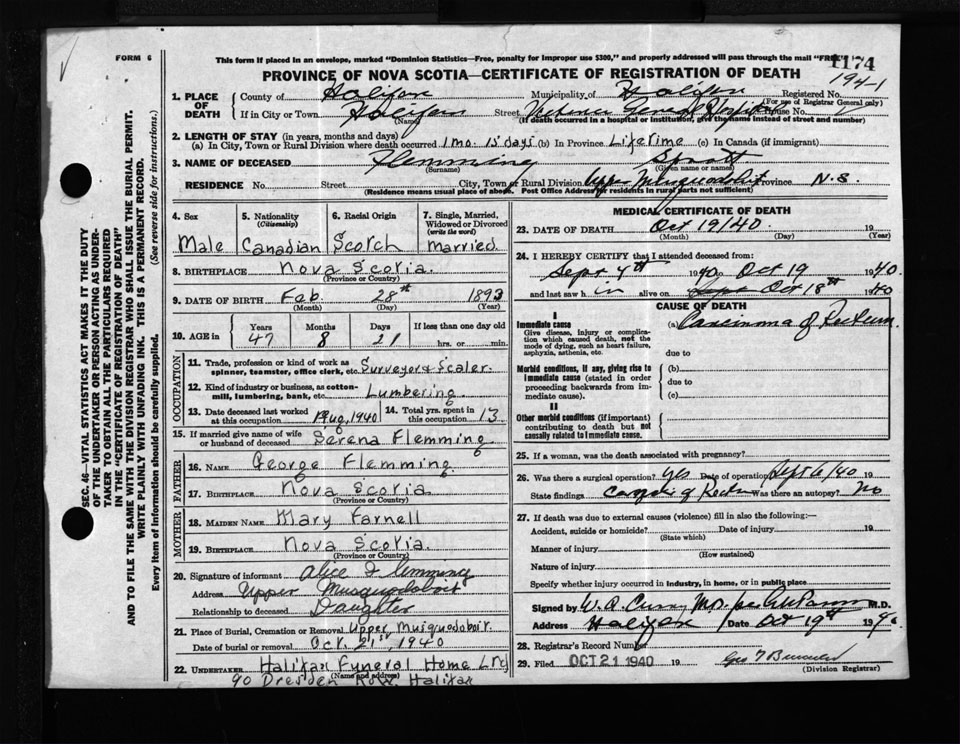 FORM 6
This form if placed in an envelope, marked "Dominion Statistics—Free, penalty for improper use $300," and properly addressed will pass through the mail "FREE"
1174
PROVINCE OF NOVA SCOTIA—CERTIFICATE OF REGISTRATION OF DEATH
194-1
1. PLACE OF DEATH County of Halifax Municipality of Halifax Registered No.
(For use of Registrar General only)
If in City or Town Halifax Street Victoria General Hospital House No.
(Name) (If death occurred in a hospital or institution, give the name instead of street and number)
2. LENGTH OF STAY (in years, months and days)
(a) In City, Town or Rural Division where death occurred 1 mo. 15 days (b) In Province Lifetime (c) In Canada (if immigrant)
3. NAME OF DECEASED Flemming Sprott
(Surname) (Given name or names)
RESIDENCE No. Street City, Town or Rural Division Upper Musquodoboit Province N.S.
(Residence means usual place of abode. Post Office Address for residents in rural parts not sufficient)
4. Sex 5. Nationality (Citizenship) 6. Racial Origin 7. Single, Married, Widowed or Divorced (write the word)
Male Canadian Scotch married
8. BIRTHPLACE Nova Scotia.
(Province or Country)
9. DATE OF BIRTH Feb. 28th 1893
(Month) (Day) (Year)
10. AGE in Years Months Days If less than one day old
47 8 21 hrs. or min.
OCCUPATION
11. Trade, profession or kind of work as spinner, teamster, office clerk, etc. Surveyor & Scaler
12. Kind of industry or business, as cotton-mill, lumbering, bank, etc. Lumbering.
13. Date deceased last worked at this occupation Aug, 1940 14. Total yrs. spent in this occupation 13
15. If married give name of wife or husband of deceased Serena Flemming
FATHER
16. NAME George Flemming.
17. BIRTHPLACE Nova Scotia
(Province or Country)
MOTHER
18. MAIDEN NAME Mary Farnell
19. BIRTHPLACE Nova Scotia.
(Province or Country)
20. Signature of informant Alice Flemming
Address Upper Musquodoboit
Relationship to deceased Daughter
21. Place of Burial, Cremation or Removal Upper Musquodoboit.
Date of burial or removal Oct. 21st, 1940
22. UNDERTAKER Halifax Funeral Home Ltd
(Name and address)
90 Dresden Row. Halifax
MEDICAL CERTIFICATE OF DEATH
23. DATE OF DEATH Oct 19/40 19
(Month) (Day) (Year)
24. I HEREBY CERTIFY that I attended deceased from:
Sept 4th 1940 to Oct 19 1940
and last saw h im alive on Oct 18th 1940
CAUSE OF DEATH
I
Immediate cause
Give disease, injury or complication which caused death, not the mode of dying, such as heart failure, asphyxia, asthenia, etc.
(a) Carcinoma of Rectum.
due to
Morbid conditions, if any, giving rise to immediate cause (stated in order proceeding backwards from immediate cause).
(b)
due to
(c)
II
Other morbid conditions (if important) contributing to death but not causally related to immediate cause.
25. If a woman, was the death associated with pregnancy?
26. Was there a surgical operation? yes Date of operation Sept 6/40 19
State findings Rectum Was there an autopsy? No
27. If death was due to external causes (violence) fill in also the following:—
Accident, suicide or homicide? Date of injury 19
(State which)
Manner of injury
(How sustained)
Nature of injury
Specify whether injury occurred in industry, in home, or in public place
Signed by W. A. Curry MD. M.D.
Address Halifax Date Oct 19th 1940
28. Registrar's Record Number
29. Filed OCT 21 1940 19
(Division Registrar)
SEC. 46—VITAL STATISTICS ACT MAKES IT THE DUTY
OF THE UNDERTAKER OR PERSON ACTING AS UNDER-
TAKER TO OBTAIN ALL THE PARTICULARS REQUIRED
IN THE "CERTIFICATE OF REGISTRATION OF DEATH"
AND TO FILE THE SAME WITH THE DIVISION REGISTRAR WHO SHALL ISSUE THE BURIAL PERMIT.
WRITE PLAINLY WITH UNFADING INK. THIS IS A PERMANENT RECORD.
Every item of Information should be carefully supplied. (See reverse side for instructions.)